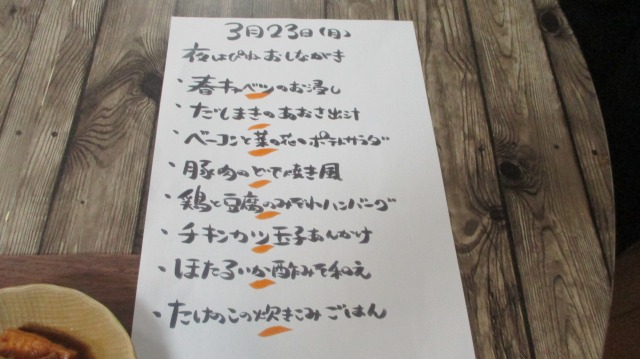 3月23日(月)
夜はぴねおしながき
・春キャベツのお浸し
・だしまきのあおさ出汁
・ベーコンと菜の花のポテトサラダ
・豚肉のどて焼き風
・鶏と豆腐のみぞれハンバーグ
・チキンカツ玉子あんかけ
・ほたるいか酢みそ和え
・たけのこの炊きこみごはん